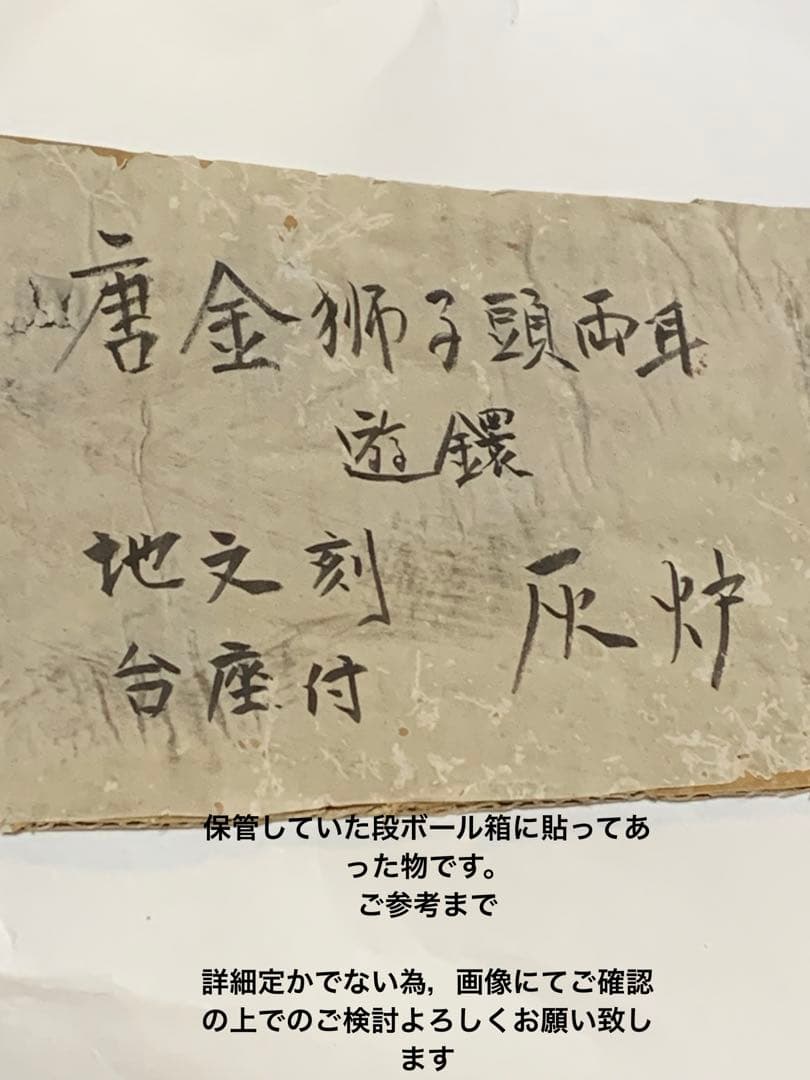 唐金狮子頭両耳
遊鐶
地文刻
台座付
灰炉
保管していた段ボール箱に貼ってあ
った物です。
ご参考まで
詳細定かでない為，画像にてご確認
の上でのご検討よろしくお願い致し
ます